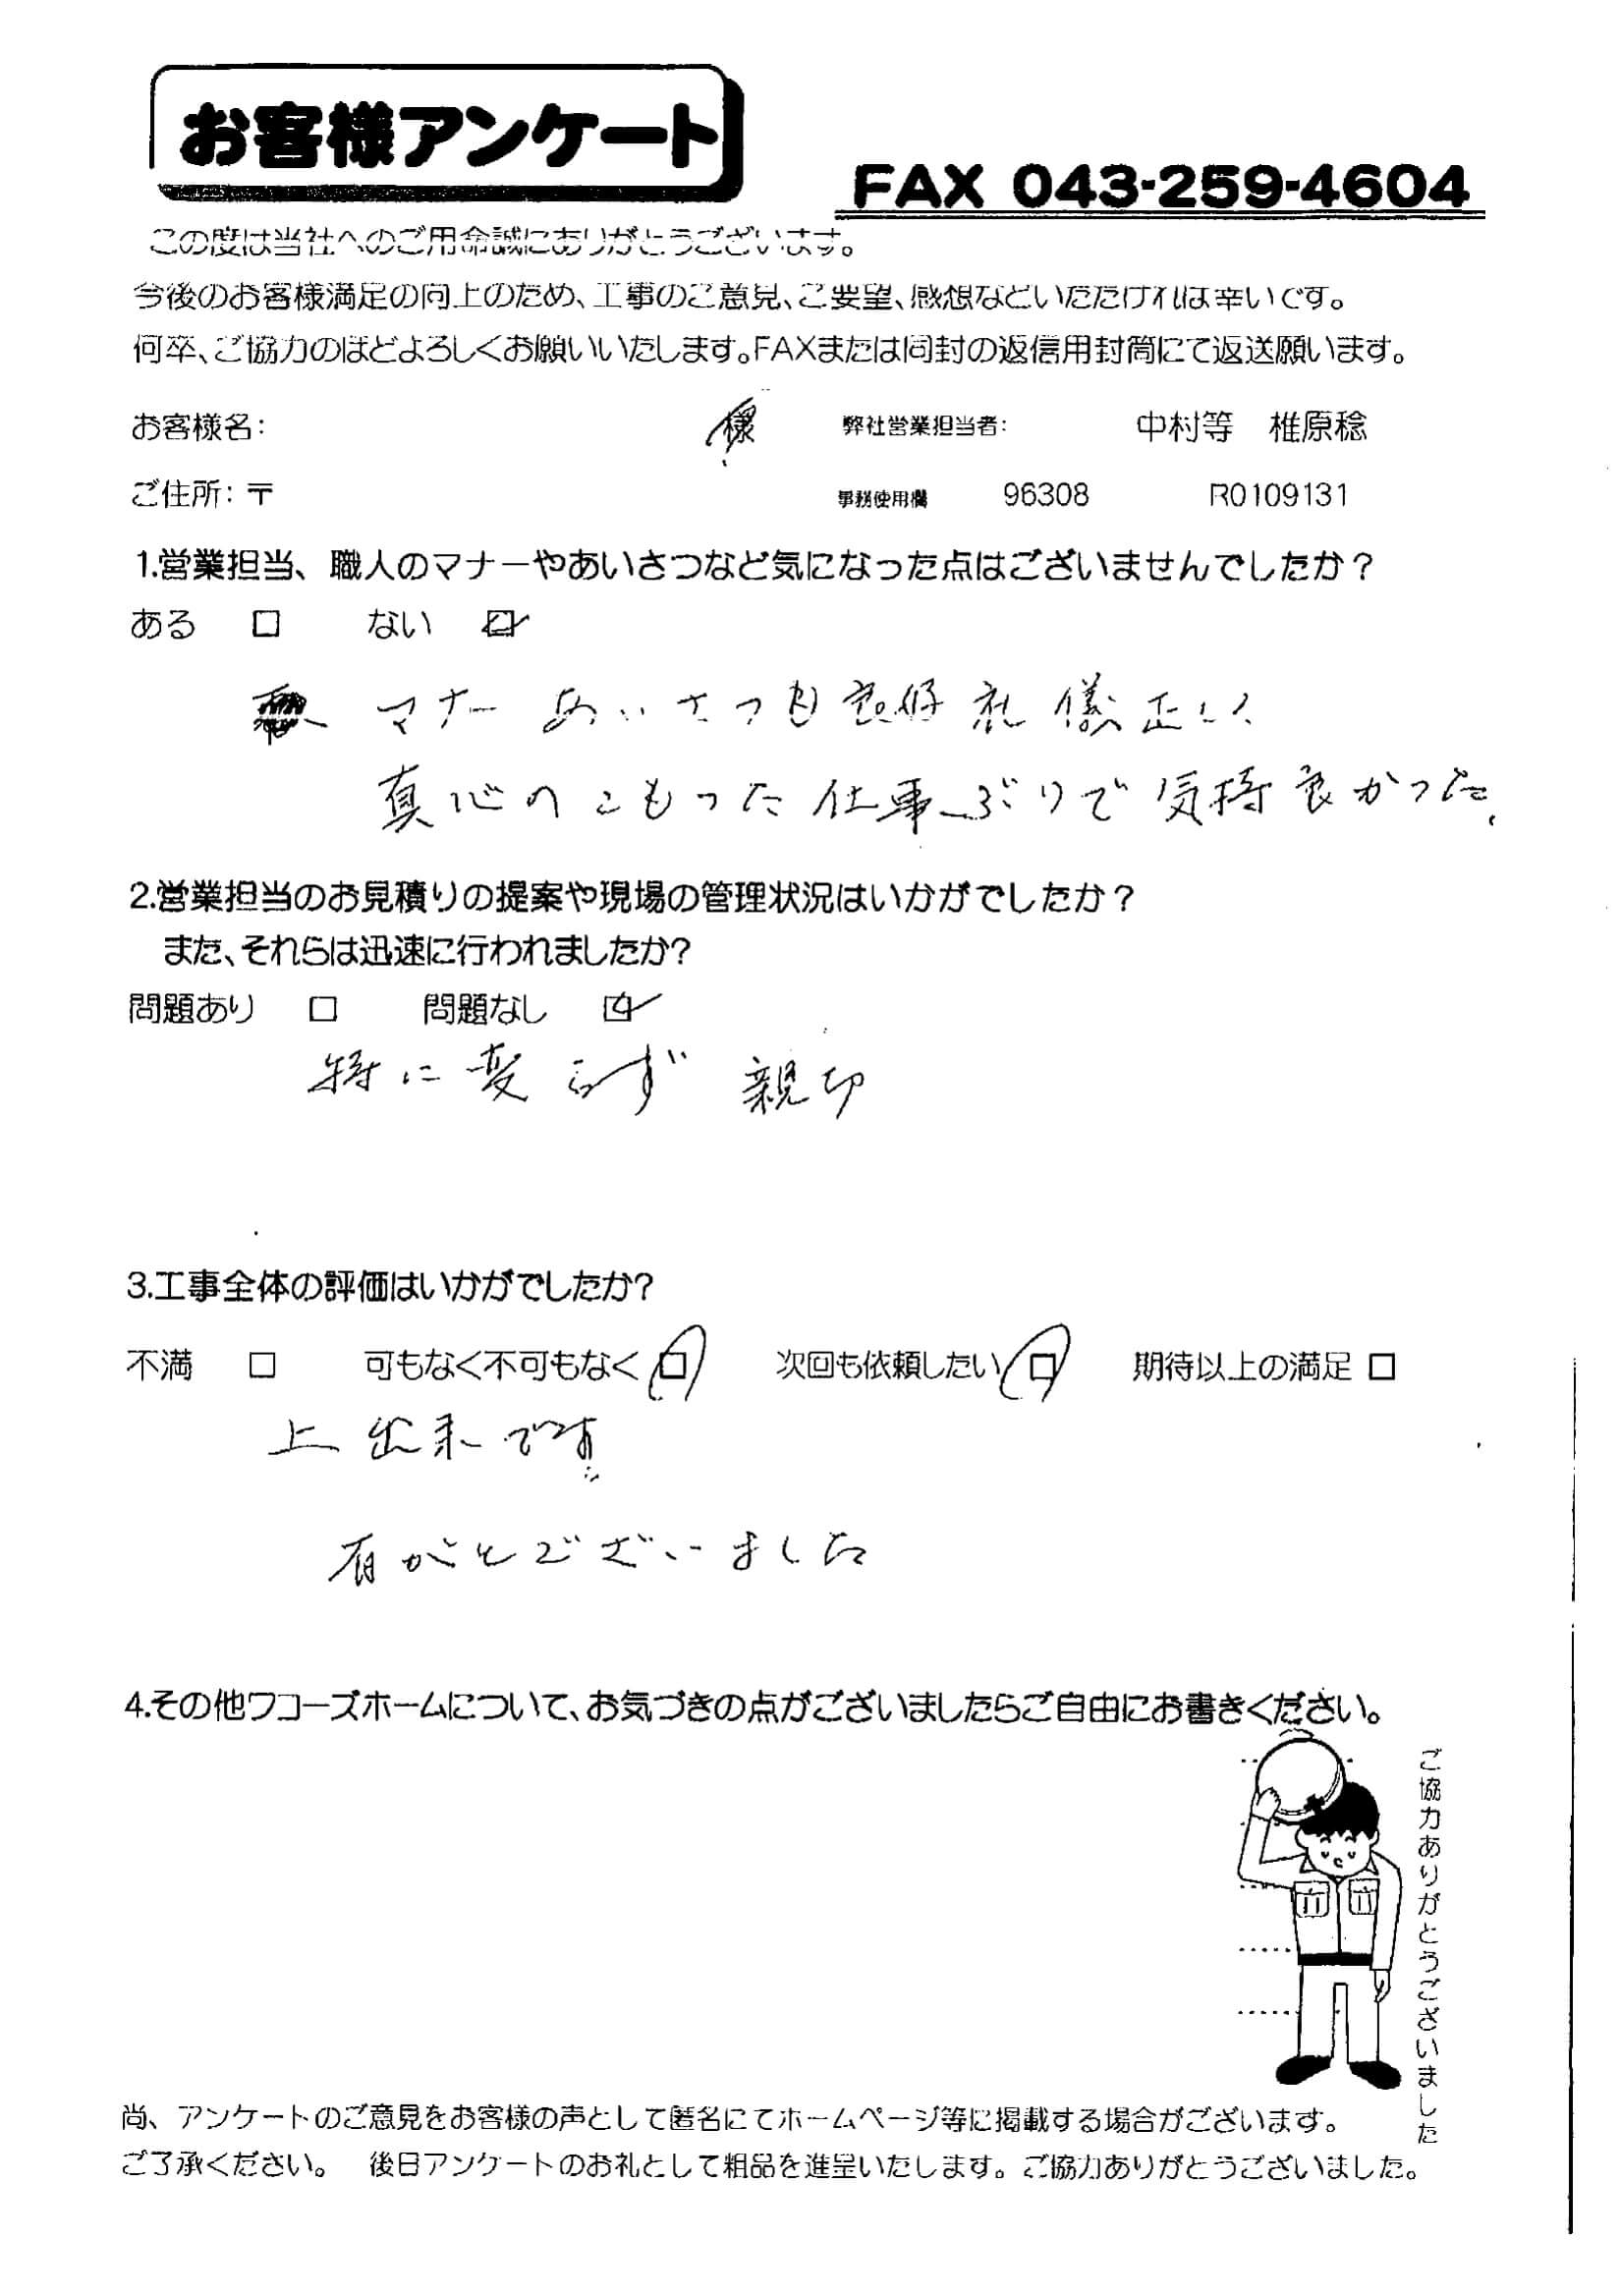 お客様アンケート
FAX 043-259-4604
この度は当社へのご用命誠にありがとうございます。
今後のお客様満足の向上のため、工事のご意見、ご要望、感想などいただければ幸いです。
何卒、ご協力のほどよろしくお願いいたします。FAXまたは同封の返信用封筒にて返送願います。
お客様名: 様 弊社営業担当者: 中村等 椎原稔
ご住所: 〒 事務使用欄 96308 R0109131
1.営業担当、職人のマナーやあいさつなど気になった点はございませんでしたか?
ある □ ない ☑
マナー あいさつも良好 礼儀正しく
真心のこもった仕事ぶりで気持良かった.
2.営業担当のお見積りの提案や現場の管理状況はいかがでしたか?
また、それらは迅速に行われましたか?
問題あり □ 問題なし ☑
特に変らず 親切
3.工事全体の評価はいかがでしたか?
不満 □ 可もなく不可もなく □ 次回も依頼したい □ 期待以上の満足 □
上出来です
有がとございました
4.その他ワコーズホームについて、お気づきの点がございましたらご自由にお書きください。
ご協力ありがとうございました
尚、アンケートのご意見をお客様の声として匿名にてホームページ等に掲載する場合がございます。
ご了承ください。 後日アンケートのお礼として粗品を進呈いたします。ご協力ありがとうございました。